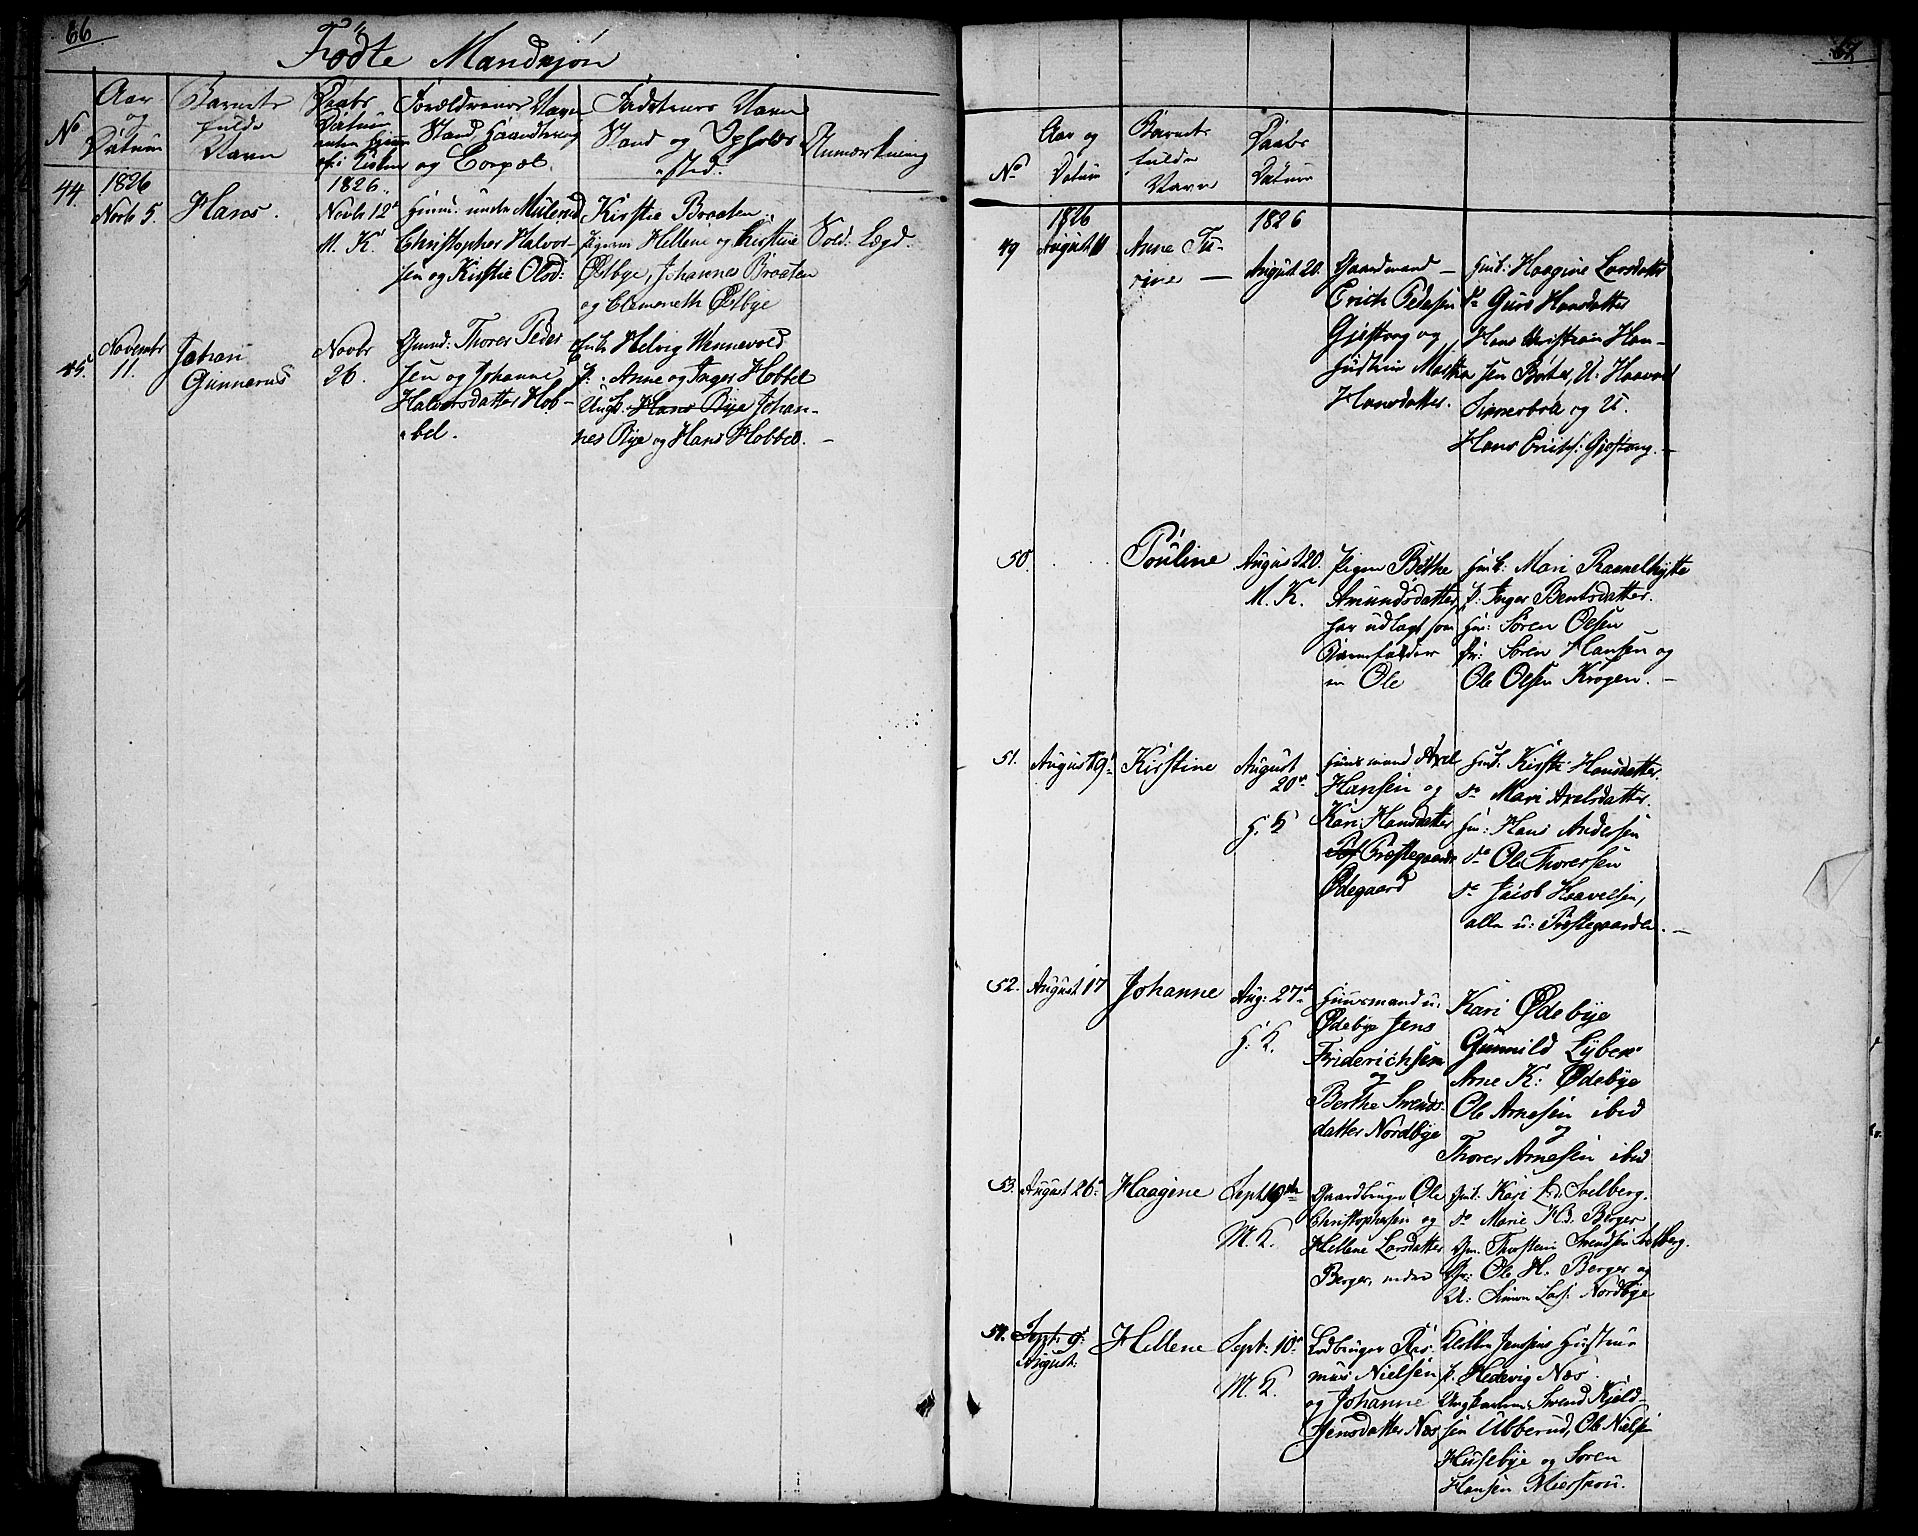 66
Fødte Mandkjøn
No
Aar
og
Datum
Barnets
fulde
Navn
Daabs
Datum
Forældrenes Navn
Stand, Haandtering
og Boepæl.
Faddernes Navn
Stand og Opholds
sted.
Anmærkning
44.
1826
Novb 5.
Hans.
1826.
Novb 12te
M. K.
Huusm. under Mülerud
Christopher Halvor-
sen og Kirstie Olsd:
Kirstie Braaten
Pigerne Hellene og Kirstine
Østbye, Johannes Braaten
og Clemmeth Østbye
Sold: Lægd.
45.
Novembr
11.
Johan
Gunnerus
Novbr
26.
Gmd: Thorer Peder
sen og Johanne
Halvorsdatter Hob-
bel.
Enke Helvig Wennevold
P: Anne og Inger Hobbel
Ungk: Hans Bye Johan-
nes Bye og Hans Hobbel. —
67
No
Aar og
Datum
Barnets
fulde
Navn
Daabs
Datum
49
1826
August 11
Anne Tu-
rine —
1826
August 20.
Gaardmand —
Erich Pedersen
Gjestvang og
Hustru Martha
Hansdatter.
Hust: Haagine Larsdatter
do Guri Hansdatter
Hans Christian Han-
sen Bøter, U. Haavel
og U.
Hans Erichs: Gjestvang. —
50.
Pouline
August 20.
M. K.
Pigen Bethe
Amundsdatter,
har udlagt som
Barnefader
en Ole
Hust: Mari Ravnelhytte
P: Inger Bentsdatter.
Hm: Søren Olsen
Dr: Søren Hansen og
Ole Olsen Krogen. —
51.
August 19
Kirstine
August
20de
H. K
Huusmand Axel
Hansen og
Kari Hansdatter
Præstegaards
Ødegaard
Hust. Kirsti Hansdatter.
do Mari Axelsdatter.
Hm: Hans Andersen
do Ole Thoresen
do Jacob Haavelsen,
alle u: Præstegaarden. —
52.
August 17
Johanne
Aug: 27de
H. K.
Huusmand u:
Ødebye Jens
Friderichsen
og
Berthe Svends-
datter Nordbye
Kari Ødebye
Gunnild Lyberg
Arne K: Ødebye
Ole Arnesen ibid
og
Thorer Arnesen ibid
53.
August 26de
Haagine
Sept
M. K.
Gaardbruger Ole
Christophersen og
Hellene Larsdatter
Berger, nedre
Hust. Kari Ld. Svelberg.
do Marie Hd. Berger
Gm. Thorstein Svendsen Svelberg.
Dr: Ole H. Berger og
U: Simen Lars: Nordbye
54.
Sept: 9de
August:
Hellene
Sept: 10de
M. K.
Lodbruger Ras-
mus Nielsen
og Johanne
Jensdatter Næs
Jensens Hustrue
P. Hedevig Næs.
Ungkarlene, Svend Kjeld-
sen Ubberud, Ole Niels:
Husebye og Søren
Hansen